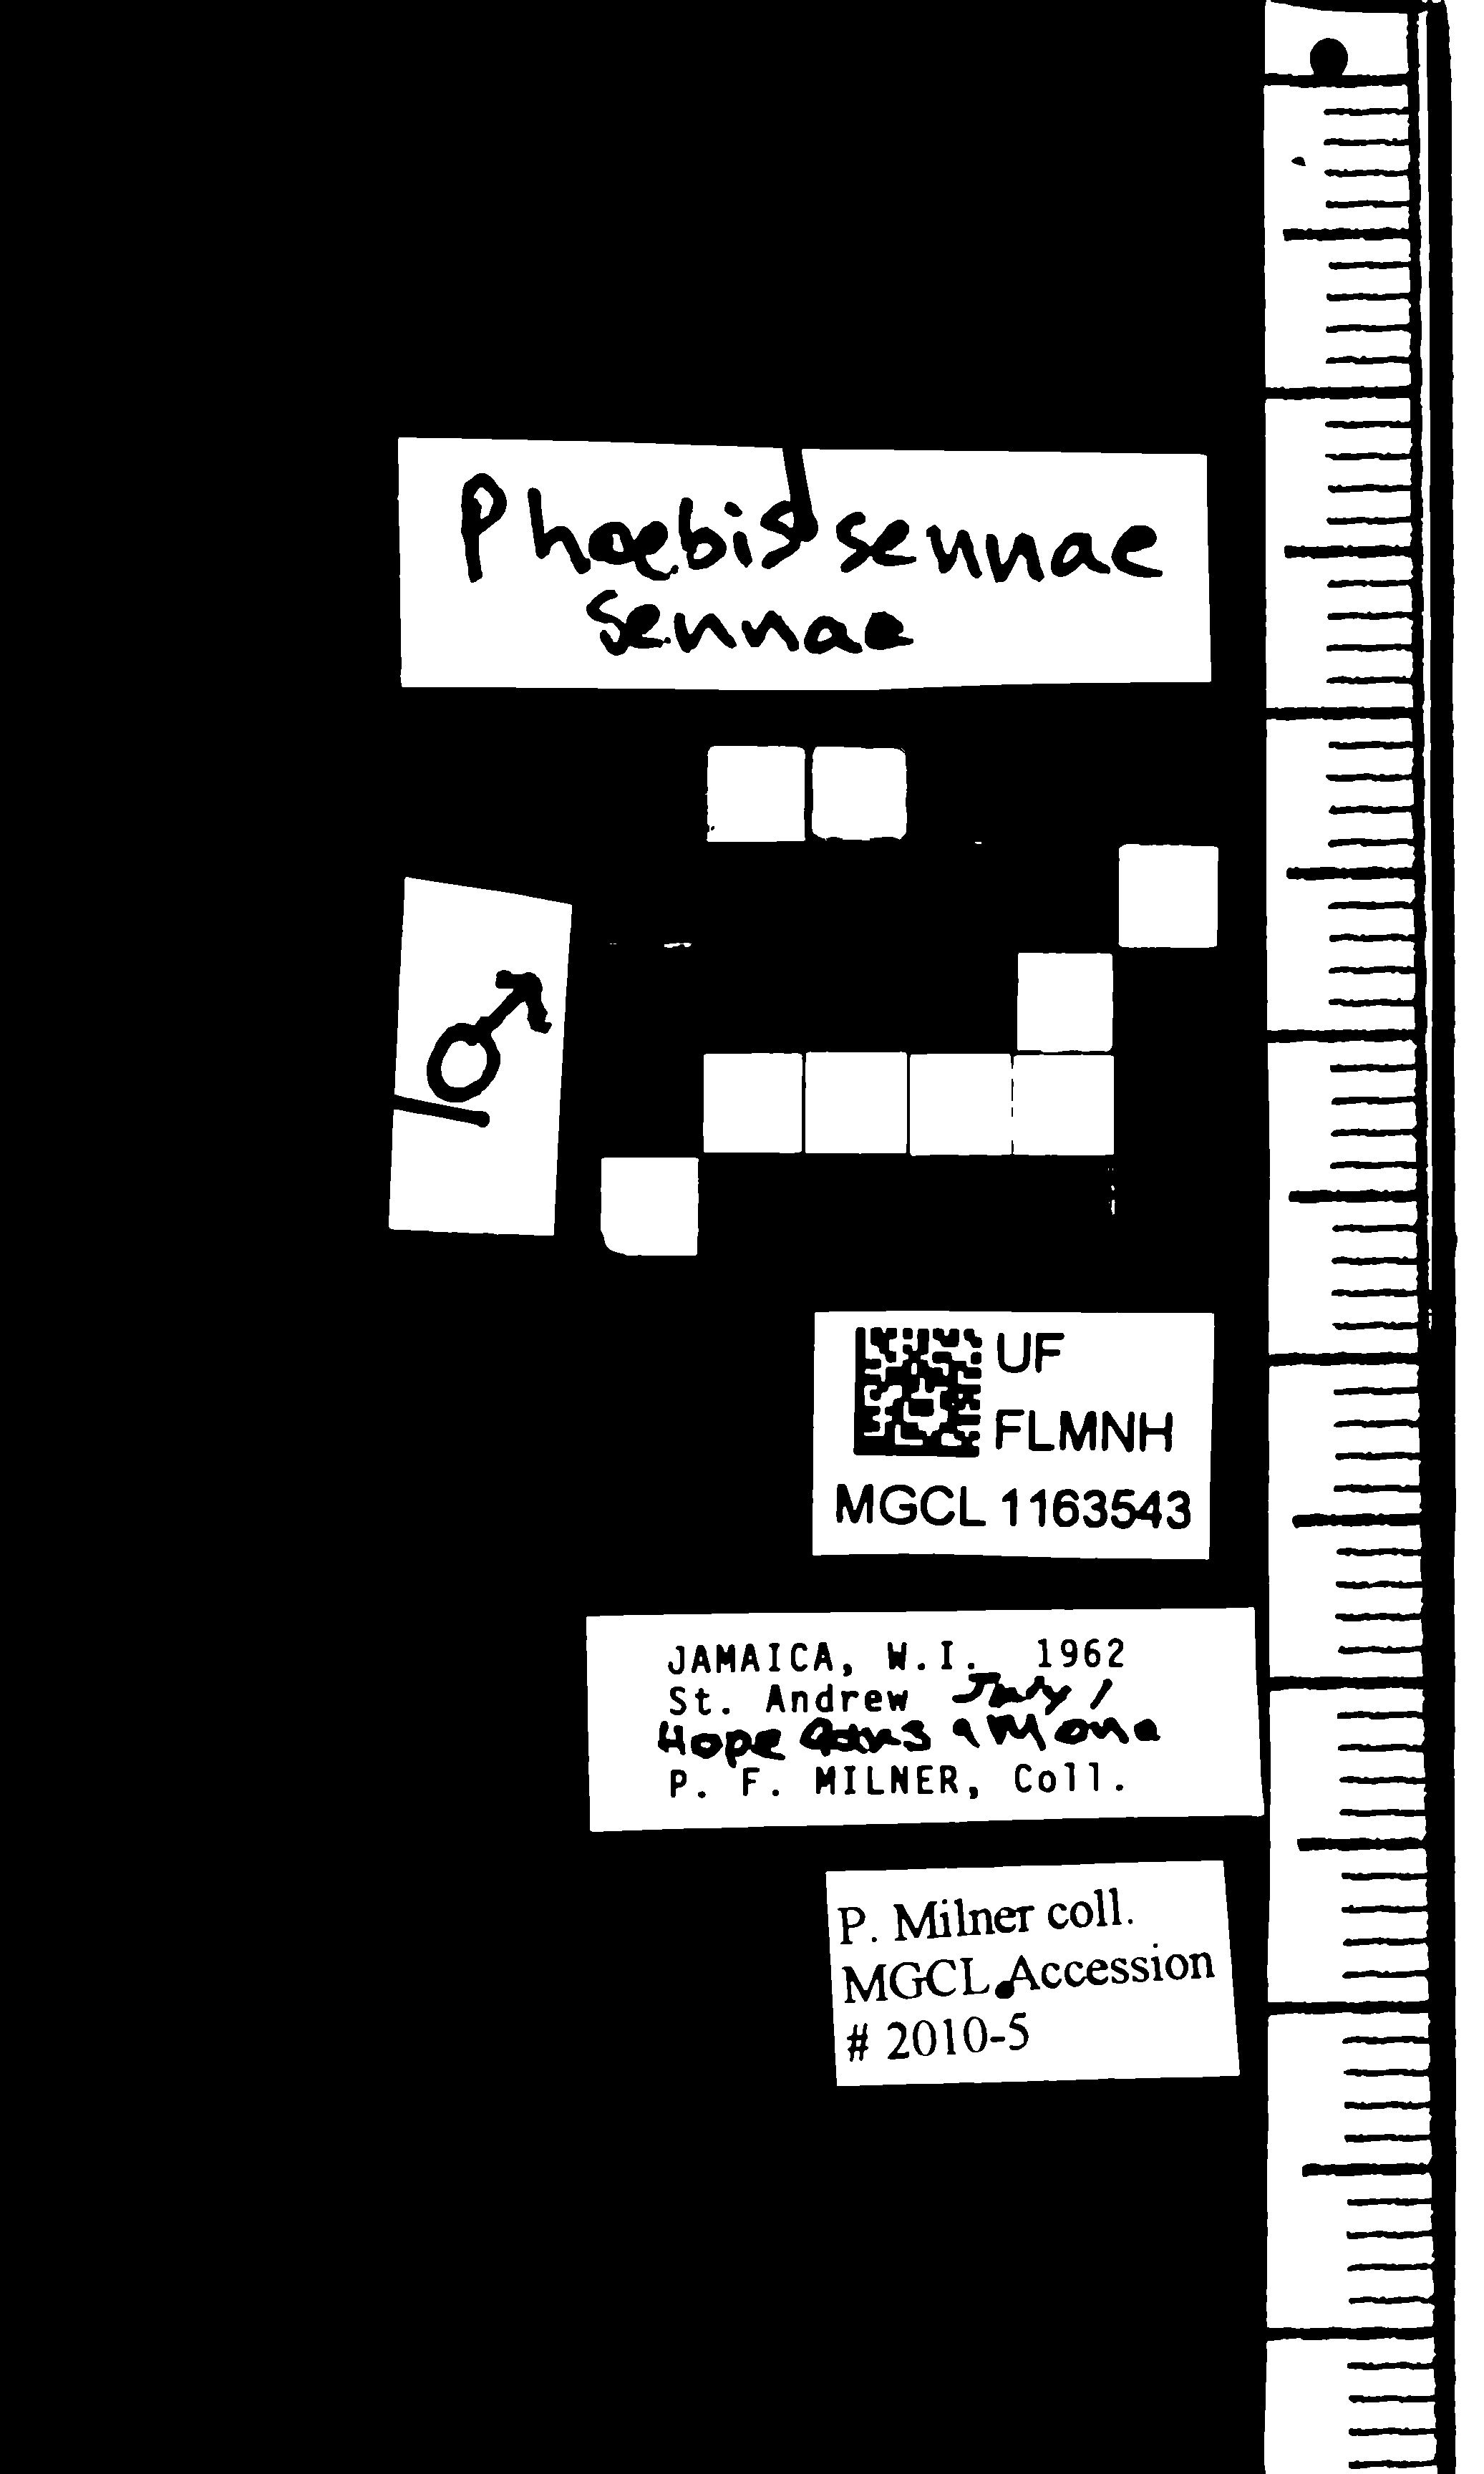 Phoebis sennae
sennae
♂
UF
FLMNH
MGCL 1163543
JAMAICA, W.I. 1962
St. Andrew July 1
Hope Gdns & Mona
P. F. MILNER, Coll.
P. Milner coll.
MGCL Accession
# 2010-5